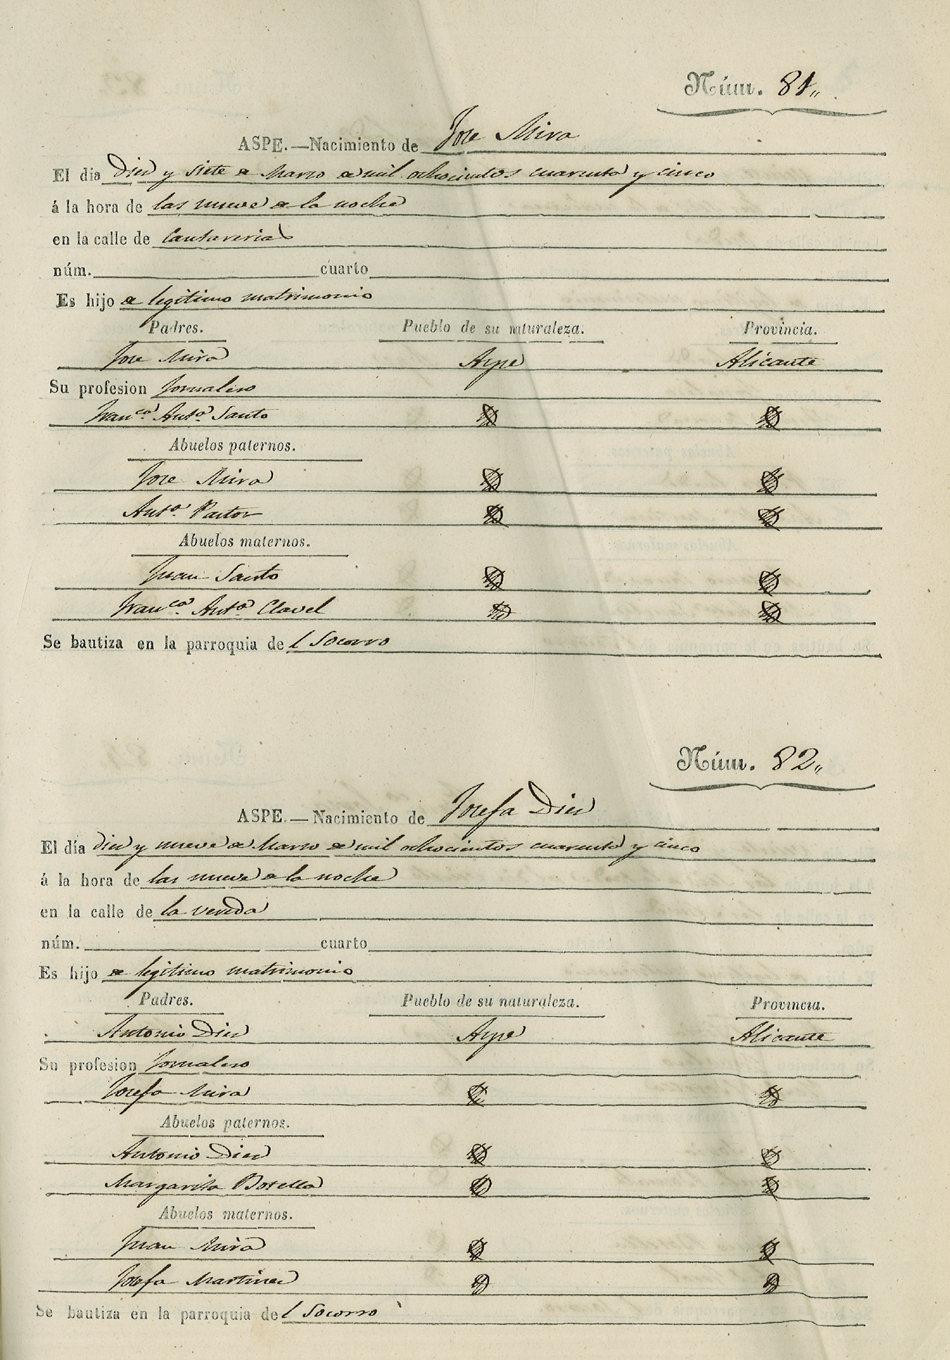 Núm. 81„
ASPE.—Nacimiento de Jose Mira
El dia Diez y siete de Marzo de mil ochocientos cuarenta y cinco
á la hora de las nueve de la noche
en la calle de Cantareria
núm. cuarto
Es hijo de legitimo matrimonio
Padres. Pueblo de su naturaleza. Provincia.
Jose Mira Aspe Alicante
Su profesion Jornalero
Franca. Anta. Santo
Abuelos paternos.
Jose Mira
Anta. Pastor
Abuelos maternos.
Juan Santo
Franca. Anta. Clavel
Se bautiza en la parroquia del Socorro
Núm. 82„
ASPE.—Nacimiento de Josefa Diez
El día diez y nueve de Marzo de mil ochocientos cuarenta y cinco
á la hora de las nueve de la noche
en la calle de la vereda
núm. cuarto
Es hijo de legitimo matrimonio
Padres. Pueblo de su naturaleza. Provincia.
Antonio Diez Aspe Alicante
Su profesion Jornalero
Josefa Mira
Abuelos paternos.
Antonio Diez
Margarita Botella
Abuelos maternos.
Juan Mira
Josefa Martinez
Se bautiza en la parroquia del Socorro